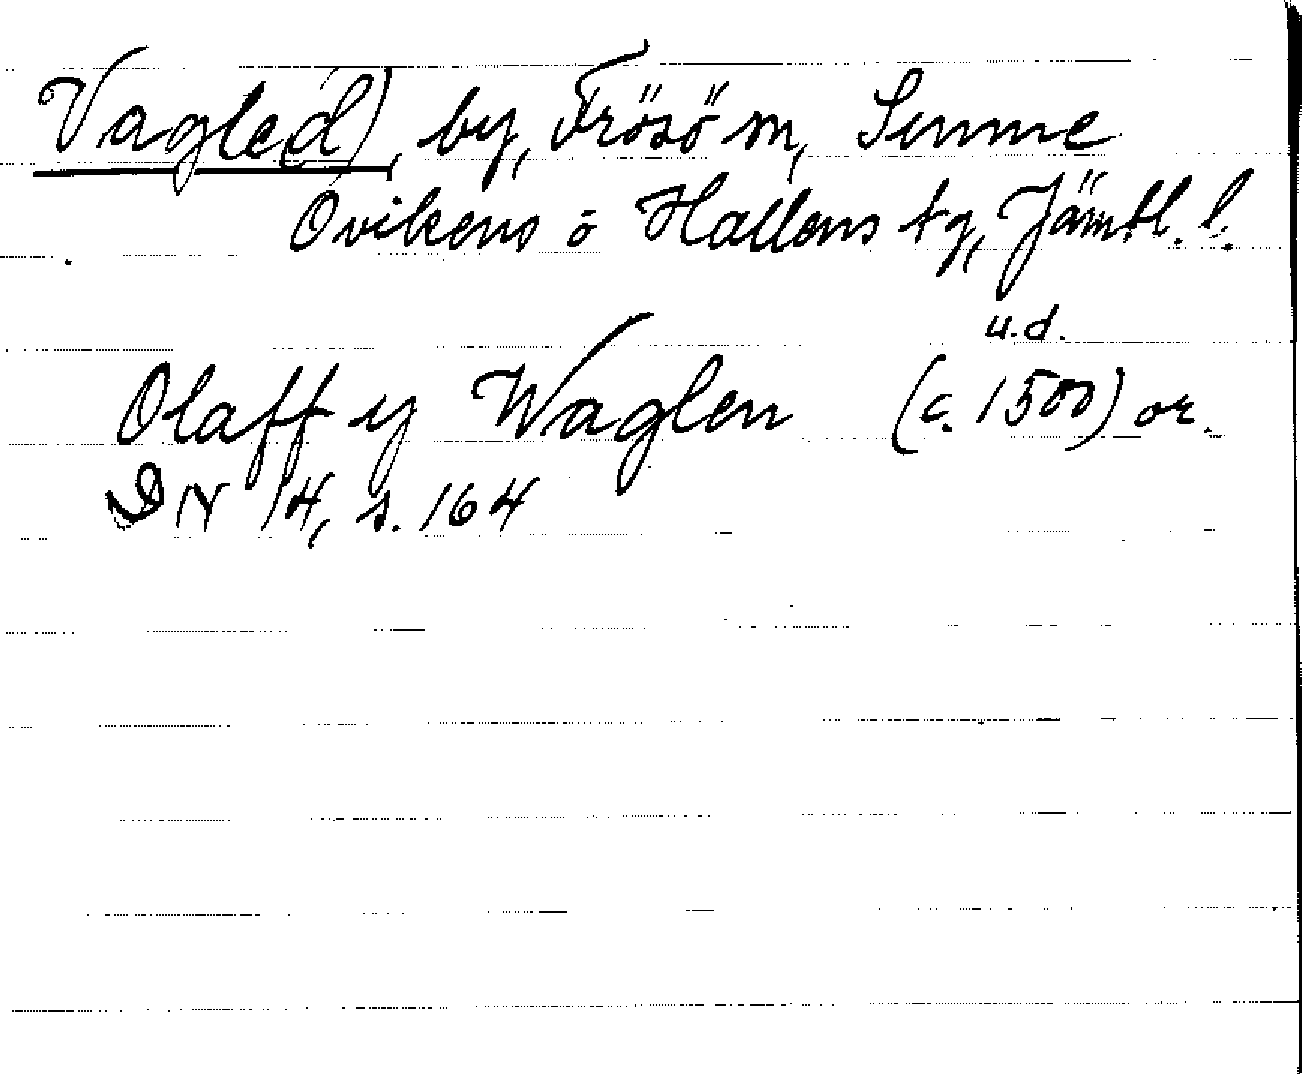 Vagle(d), by, Frösö sn, Sunne
Ovikens o Hallens tg, Jämtl. l.
u.d.
Olaff y Waglen (c. 1500) or.
DN 14, s. 164